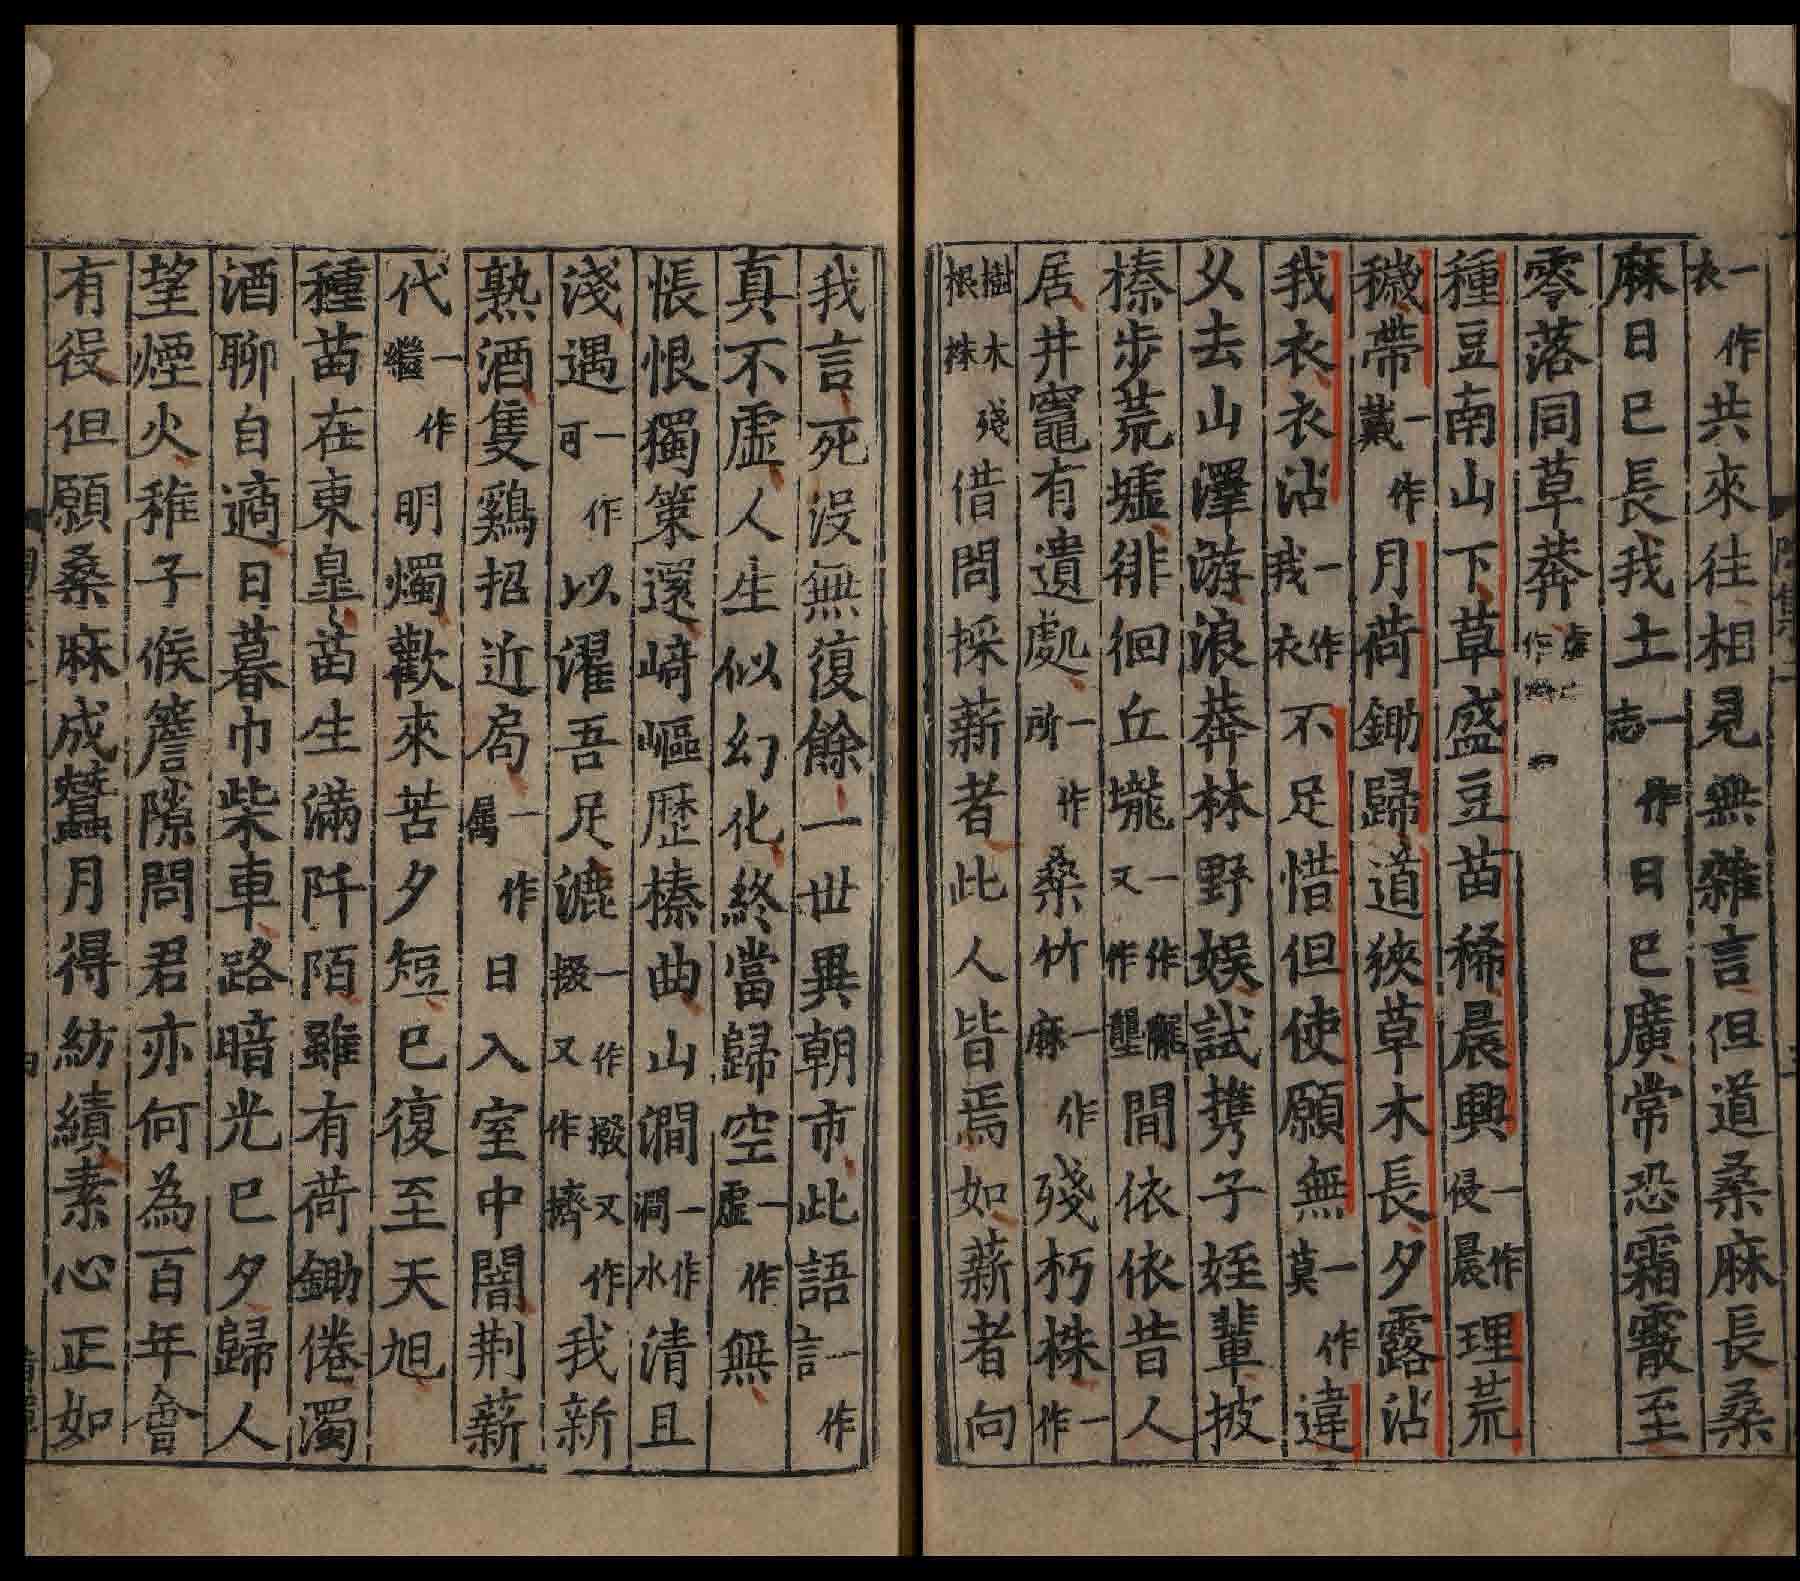 一作衣共來徃相見無雜言但道桑麻長桑
麻日已長我土一作志日已廣常恐霜霰至
零落同草莽
種豆南山下草盛豆苗稀晨興一作侵晨理荒
穢帶一作戴月荷鋤歸道狹草木長夕露沾
我衣衣沾一作我衣不足惜但使願無一作莫違
乆去山澤游浪莽林野娛試携子姪輩披
榛步荒墟徘徊丘壠一作隴又作壟間依依昔人
居井竈有遺處一作所桑竹一作麻殘朽株一作
樹木殘根株借問採薪者此人皆焉如薪者向
我言死沒無復餘一世異朝市此語一作言
真不虛人生似幻化終當歸空一作虛無
悵恨獨策還崎嶇歷榛曲山澗一作澗水清且
淺遇一作可以濯吾足漉一作撥又作撥又作擠我新
熟酒隻鷄招近局一作屬日入室中闇荆薪
代一作繼明燭歡來苦夕短已復至天旭
種苗在東皋苗生滿阡陌雖有荷鋤倦濁
酒聊自適日暮巾柴車路暗光已夕歸人
望煙火稚子候簷隙問君亦何為百年會
有役但願桑麻成蠶月得紡績素心正如